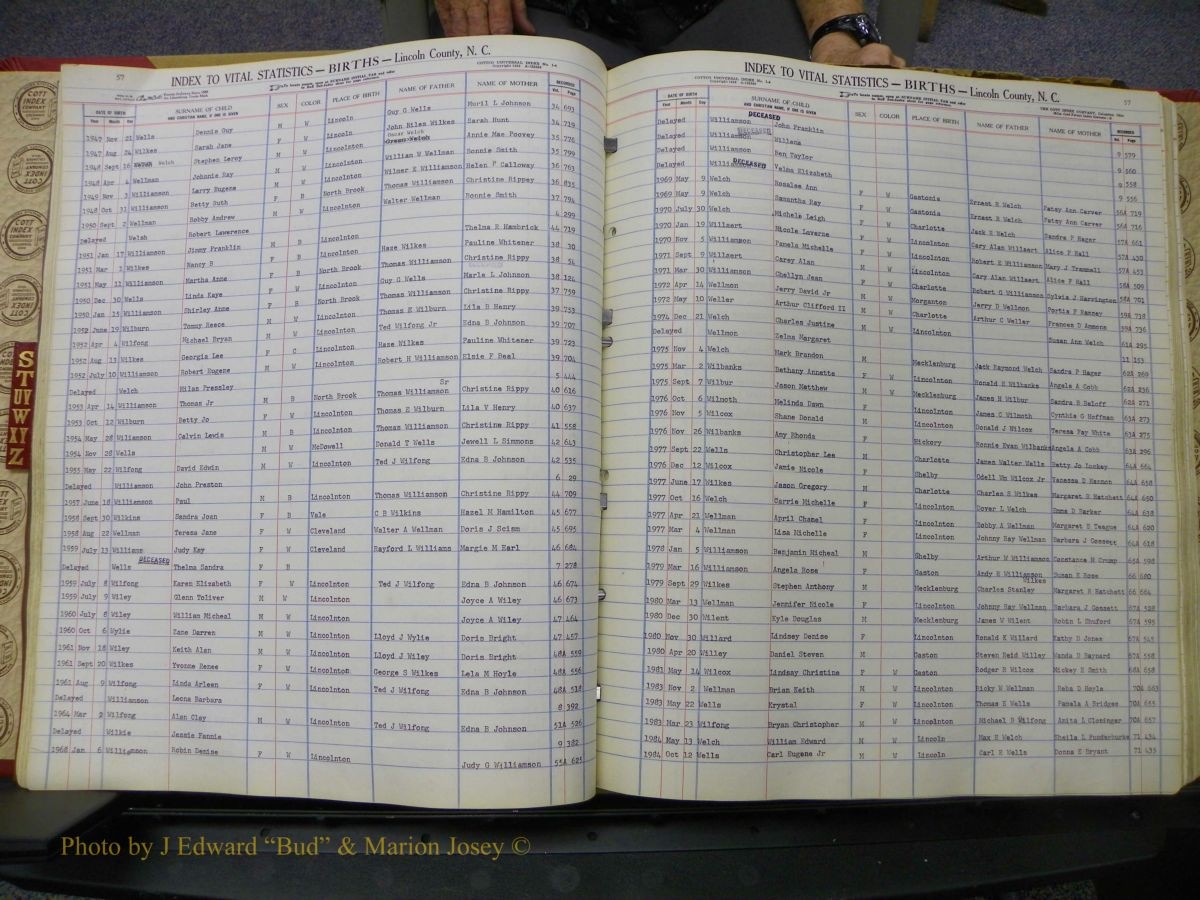 57
INDEX TO VITAL STATISTICS — BIRTHS — Lincoln County, N. C.
COTT UNIVERSAL INDEX No. 1-A
DATE OF BIRTH
Year Month Day
SURNAME OF CHILD
AND CHRISTIAN NAME, IF ONE IS GIVEN
SEX COLOR PLACE OF BIRTH NAME OF FATHER NAME OF MOTHER
RECORDED
Vol. Page
1947 Nov 21 Wells Dennis Guy M W Lincoln Guy G Wells Muril L Johnson 34 693
1947 Aug 24 Wilkes Sarah Jane F W Lincoln John Niles Wilkes Sarah Hunt 34 719
1948 Sept 16 Welch Stephen Leroy M W Lincolnton Oscar Welch Annie Mae Poovey 35 776
1948 Apr 4 Wellman Johnnie Ray M W Lincolnton William W Wellman Bonnie Smith 35 799
1949 Nov 3 Williamson Larry Eugene M W Lincolnton Wilmer E Williamson Helen P Calloway 36 763
1948 Oct 31 Williamson Betty Ruth F B North Brook Thomas Williamson Christine Rippey 36 835
1950 Sept 2 Wellman Bobby Andrew M W Lincolnton Walter Wellman Bonnie Smith 37 794
Delayed Welsh Robert Lawerence 4 299
1951 Jan 17 Williamson Jimmy Franklin M B Lincolnton Thelma R Hambrick 44 719
1951 Mar 1 Wilkes Nancy B F B Lincolnton Haze Wilkes Pauline Whitener 38 30
1951 May 11 Williamson Martha Anne F B North Brook Thomas Williamson Christine Rippy 38 54
1950 Dec 30 Wells Linda Kaye F W Lincolnton Guy G Wells Marle L Johnson 38 124
1950 Jan 15 Williamson Shirley Anne F B North Brook Thomas Williamson Christine Rippy 37 759
1952 June 19 Wilburn Tommy Reece M W Lincolnton Thomas E Wilburn Lila B Henry 39 753
1952 Apr 4 Wilfong Michael Bryan M W Lincolnton Ted Wilfong Jr Edna B Johnson 39 707
1952 Aug 13 Wilkes Georgia Lee F C Lincolnton Haze Wilkes Pauline Whitener 39 723
1952 July 10 Williamson Robert Eugene M W Lincolnton Robert H Williamson Elsie F Beal 39 704
Delayed Welch Milas Pressley 5 444
1953 Apr 14 Williamson Thomas Jr M B North Brook Thomas Williamson Sr Christine Rippy 40 616
1953 Oct 12 Wilburn Betty Jo F W Lincolnton Thomas E Wilburn Lila V Henry 40 637
1954 May 28 Wiliamson Calvin Lewis M B Lincolnton Thomas Williamson Christine Rippy 41 558
1954 Nov 28 Wells M W McDowell Donald T Wells Jewell L Simmons 42 643
1955 May 22 Wilfong David Edwin M W Lincolnton Ted J Wilfong Edna B Johnson 42 535
Delayed Williamson John Preston 6 29
1957 June 18 Williamson Paul M B Lincolnton Thomas Williamson Christine Rippy 44 709
1958 Sept 30 Wilkins Sandra Joan F B Vale C B Wilkins Hazel M Hamilton 45 677
1958 Aug 22 Wellman Teresa Jane F W Cleveland Walter A Wellman Doris J Scism 45 695
1959 July 13 Williams Judy Kay F W Cleveland Rayford L Williams Margie M Earl 46 684
Delayed Wells DECEASED Thelma Sandra F B 7 278
1959 July 8 Wilfong Karen Elizabeth F W Lincolnton Ted J Wilfong Edna B Johnson 46 674
1959 July 9 Wiley Glenn Toliver M W Lincolnton Joyce A Wiley 46 673
1960 July 8 Wiley William Micheal M W Lincolnton Joyce A Wiley 47 464
1960 Oct 6 Wylie Zane Darren M W Lincolnton Lloyd J Wylie Doris Bright 47 457
1961 Nov 18 Wiley Keith Alan M W Lincolnton Lloyd J Wiley Doris Bright 48A 559
1961 Sept 20 Wilkes Yvonne Renee F W Lincolnton George S Wilkes Lela M Hoyle 48A 556
1961 Aug 9 Wilfong Linda Arleen F W Lincolnton Ted J Wilfong Edna B Johnson 48A 518
Delayed Williamson Leona Barbara 8 392
1964 Mar 2 Wilfong Alan Clay M W Lincolnton Ted J Wilfong Edna B Johnson 51A 526
Delayed Wilkie Jessie Fannie 9 382
1968 Jan 6 Williamson Robin Denise F W Lincolnton Judy G Williamson 55A 625
INDEX TO VITAL STATISTICS — BIRTHS — Lincoln County, N. C.
57
COTT UNIVERSAL INDEX No. 1-A
DATE OF BIRTH
Year Month Day
SURNAME OF CHILD
AND CHRISTIAN NAME, IF ONE IS GIVEN
SEX COLOR PLACE OF BIRTH NAME OF FATHER NAME OF MOTHER
RECORDED
Vol. Page
Delayed Williamson DECEASED John Franklin 9 579
Delayed Williamson DECEASED Willena 9 560
Delayed Williamson Ben Taylor 9 558
Delayed Williamson DECEASED Velma Elizabeth 9 556
1969 May 9 Welch Rosalee Ann F W Gastonia Ernest R Welch Patsy Ann Carver 56A 719
1969 May 9 Welch Samantha Ray F W Gastonia Ernest R Welch Patsy Ann Carver 56A 716
1970 July 30 Welch Michele Leigh F W Charlotte Jack R Welch Sandra P Hager 57A 661
1970 Jan 19 Willzert Nicole Laverne F W Lincolnton Gary Alan Willzert Alice F Hall 57A 430
1970 Nov 5 Williamson Pamela Michelle F W Lincolnton Robert E Williamson Mary J Trammell 57A 453
1971 Sept 9 Willzert Carey Alan M W Lincolnton Gary Alan Willzert Alice F Hall 58A 509
1971 Mar 30 Williamson Chellyn Jean F W Charlotte Robert G Williamson Sylvia J Harvington 58A 701
1972 Apr 14 Wellmon Jerry David Jr M W Morganton Jerry D Wellmon Portia F Ramsey 59A 738
1972 May 10 Weller Arthur Clifford II M W Charlotte Arthur C Weller Frances D Ammons 59A 736
1974 Dec 21 Welch Charles Justine M W Lincolnton Susan Ann Welch 61A 295
Delayed Wellmon Zelma Margaret 11 153
1975 Nov 4 Welch Mark Brandon M Mecklenburg Jack Raymond Welch Sandra P Hager 62A 269
1975 Mar 2 Wilbanks Bethany Annette F W Lincolnton Ronald E Wilbanks Angela A Cobb 62A 236
1975 Sept 7 Wilbur Jason Matthew M W Mecklenburg James H Wilbur Sandra B Saloff 62A 271
1976 Oct 6 Wilmoth Melinda Dawn F Lincolnton James C Wilmoth Cynthia G Hoffman 63A 273
1976 Nov 5 Wilcox Shane Donald M Lincolnton Donald J Wilcox Teresa Fay White 63A 275
1976 Nov 26 Wilbanks Amy Rhonda F Hickory Ronnie Evan Wilbanks Angela A Cobb 63A 296
1977 Sept 22 Wells Christopher Lee M Charlotte James Walter Wells Betty Jo Lackey 64A 664
1976 Dec 12 Wilcox Jamie Nicole F Shelby Odell Wm Wilcox Jr Vanessa D Hannon 64A 658
1977 June 17 Wilkes Jason Gregory M Charlotte Charles S Wilkes Margaret R Hatchett 64A 650
1977 Oct 16 Welch Carrie Michelle F Lincolnton Dover L Welch Emma D Barker 64A 638
1977 Apr 21 Wellman April Chanel F Lincolnton Bobby A Wellman Margaret D Teague 64A 620
1977 Mar 4 Wellman Lisa Michelle F Lincolnton Johnny Ray Wellman Barbara J Gossett 64A 618
1978 Jan 5 Williamson Benjamin Micheal M Shelby Arthur M Williamson Constance H Crump 65A 598
1979 Mar 16 Williamson Angela Rose F Gaston Andy R Williamson Susan E Rose 66 680
1979 Sept 29 Wilkes Stephen Anthony M Mecklenburg Charles Stanley Wilkes Margaret R Hatchett 66 664
1980 Mar 13 Wellman Jennifer Nicole F Lincolnton Johnny Ray Wellman Barbara J Gossett 67A 528
1980 Dec 30 Wilent Kyle Douglas M Mecklenburg James W Wilent Robin L Shuford 67A 595
1980 Nov 30 Willard Lindsey Denise F Lincolnton Ronald K Willard Kathy D Jones 67A 545
1980 Apr 20 Willey Daniel Steven M Gaston Steven Reid Willey Wanda D Baynard 67A 558
1981 May 14 Wilcox Lindsay Christine F W Gaston Rodger B Wilcox Mickey E Smith 68A 658
1983 Nov 2 Wellman Brian Keith M W Lincolnton Ricky W Wellman Reba D Hoyle 70A 663
1983 May 22 Wells Krystal F W Lincolnton Thomas E Wells Pamela A Bridges 70A 655
1983 Mar 23 Wilfong Bryan Christopher M W Lincolnton Michael D Wilfong Amita L Cloninger 70A 657
1984 May 13 Welch William Edward M W Lincoln Max E Welch Sheila L Funderburke 71 434
1984 Oct 12 Wells Carl Eugene Jr M W Lincoln Carl E Wells Donna E Bryant 71 435
S
T
U V
W
XYZ
COTT INDEX COMPANY
Photo by J Edward “Bud” & Marion Josey ©